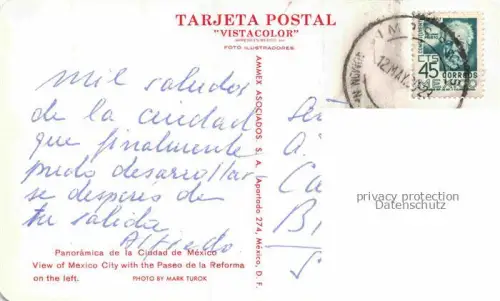 TARJETA POSTAL
"VISTACOLOR"
FOTO ILUSTRADORES
mil saludos
de la ciudad
que finalmente
pudo desarrollar-
se después de
tu salida
Alfredo
Panorámica de la Ciudad de México
View of Mexico City with the Paseo de la Reforma
on the left. PHOTO BY MARK TUROK
AMMEX ASOCIADOS, S. A. (Apartado 274, México, D. F.
12 MAY
45
CORREOS
MEXICO
privacy protection
Datenschutz